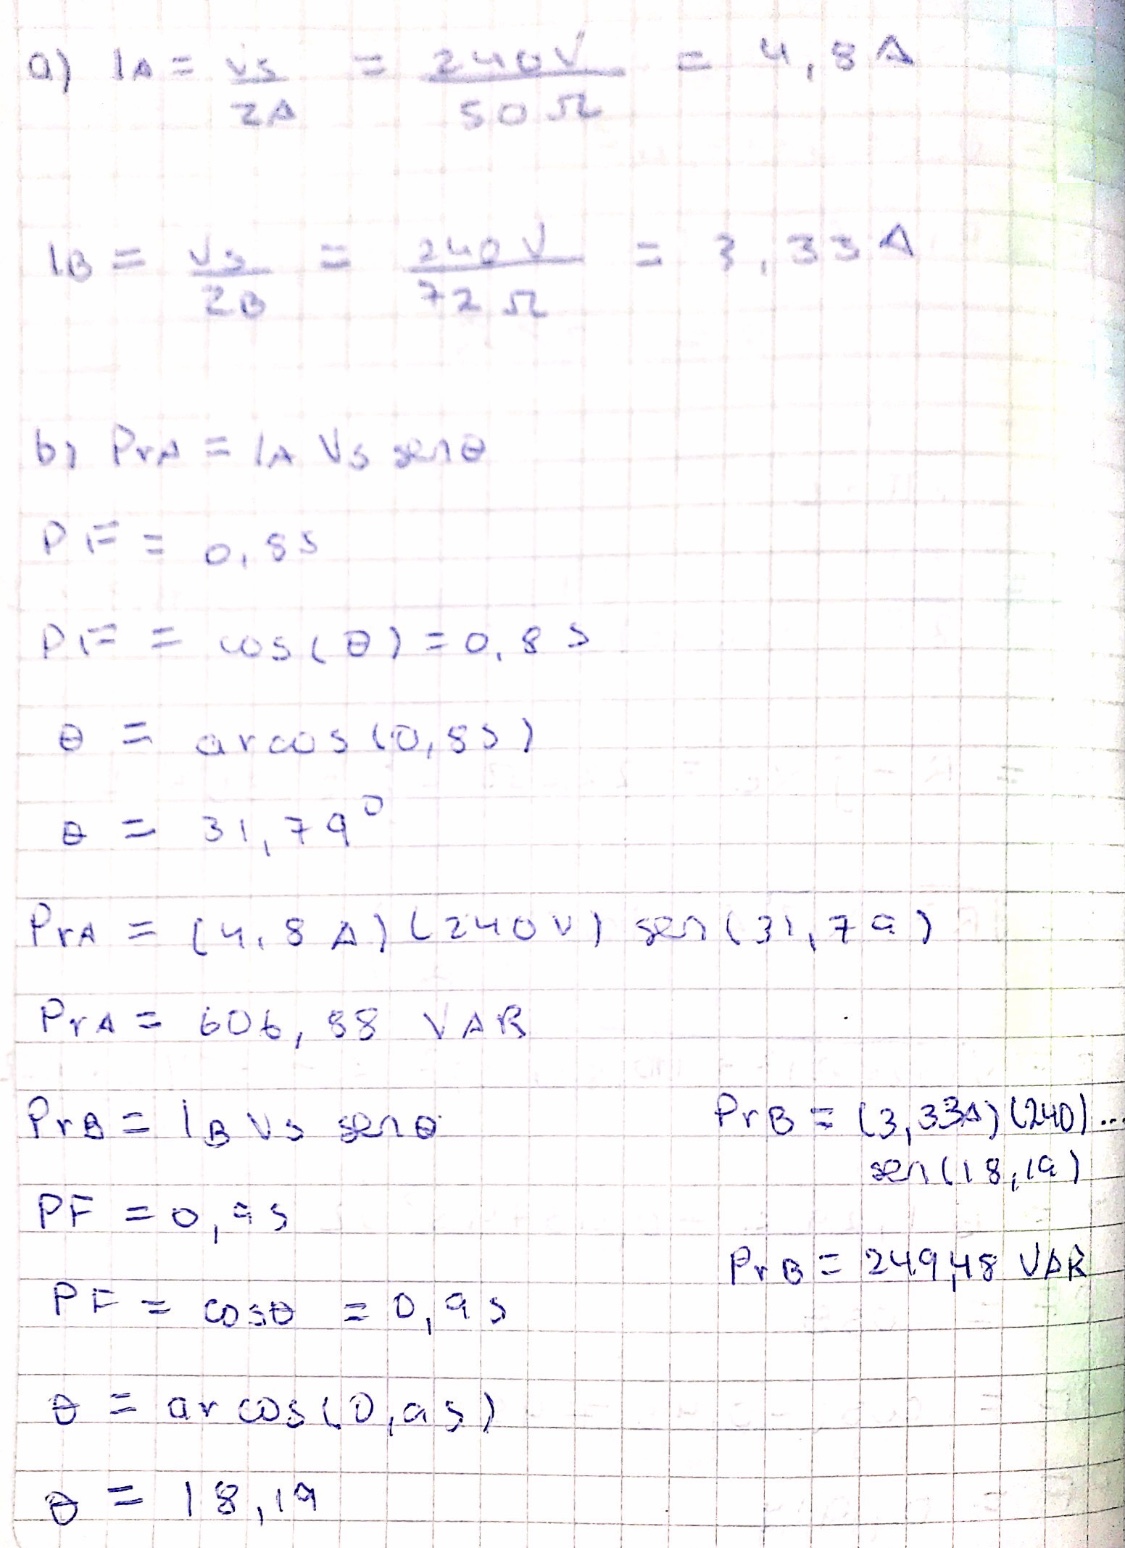 a) IA = Vs/ZA = 240V/50Ω = 4,8 A
IB = Vs/ZB = 240V/72Ω = 3,33 A
b) PrA = IA Vs senθ
PF = 0,85
PF = cos(θ) = 0,85
θ = arcos(0,85)
θ = 31,79°
PrA = (4,8 A)(240V) sen(31,79)
PrA = 606,88 VAR
PrB = IB Vs senθ
PF = 0,95
PF = cosθ = 0,95
θ = arcos(0,95)
θ = 18,19
PrB = (3,33A)(240)...
sen(18,19)
PrB = 249,48 VAR